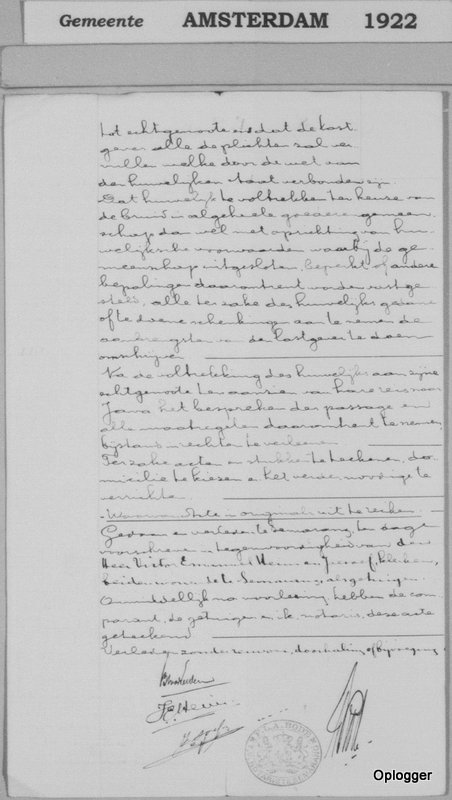 Gemeente AMSTERDAM 1922
tot echtgenoote en dat de last
gever alle de plichten zal ver
vullen welke door de wet aan
den huwelijken staat verbonden zijn.
Dat huwelijk te voltrekken ter keuze van
de bruid in algeheele goederen gemeen
schap dan wel met oprichting van hu
welijksche voorwaarden waarbij de ge
meenschap uitgesloten, beperkt of andere
bepalingen daaromtrent worden vastge
steld, alle ter zake des huwelijks gedane
of te doene schenkingen aan te nemen de
aanbrengsten van de lastgever te doen
omschrijven
Na de voltrekking des huwelijks aan zijne
echtgenoote ten aanzien van hare reis naar
Java het bespreken der passage en
alle maatregelen daaromtrent te nemen,
bijstand in rechten te verleenen
Ter zake acten en stukken te teekenen, do
micilie te kiezen en het verder noodige te
verrichten
Waarvan Acte in originali uit te reiken
Gedaan en verleden te Semarang, ten dage
voorschreven in tegenwoordigheid van den
Heer Victor Emanuel Heim en Joseef
beiden wonende te Semarang, als getuigen.
Onmiddellijk na voorlezing hebben de com
parant, de getuigen en ik, notaris, deze acte
geteekend
Verleden zonder doorhaling of bijvoeging
Heim
Oplogger